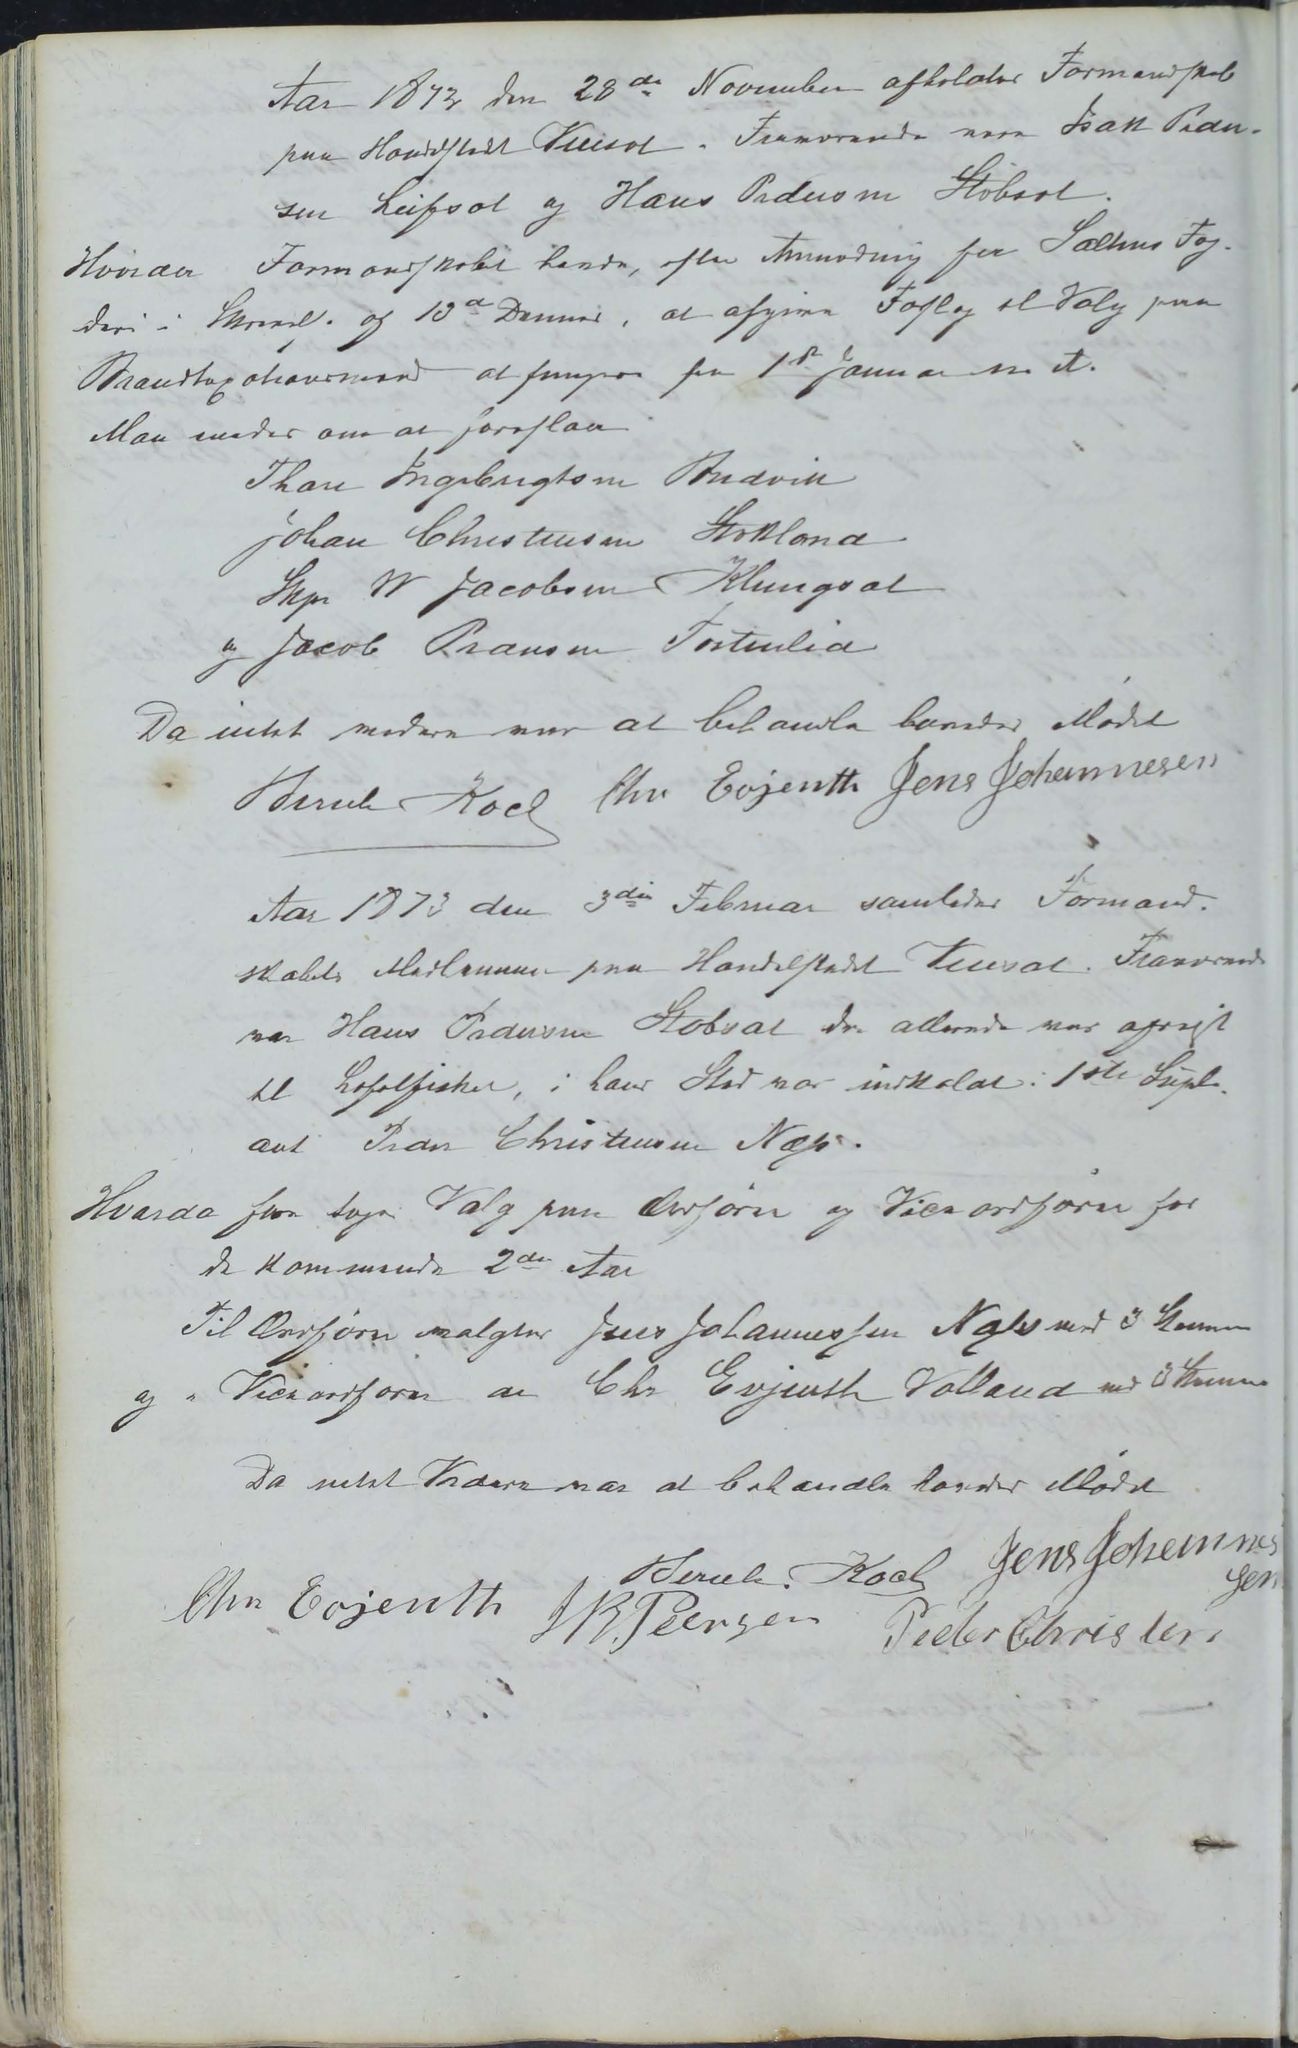 Aar 1872 den 28de November afholdtes Formandskab
paa Handelstedet Venset. Fraværende vare Isak Peder-
sen Leifset og Hans Pedersen Støbset.
Hvorda Formandskabet havde, efter Anmodning fra Saltens Fog-
deri i Skrivelse af 13de Dennes, at afgive Forslag til Valg paa
Brandtaxationsmænd at fungere fra 1ste Januar n. A.
Man enedes om at foreslaa
Thore Ingebrigtsen Budvik
Johan Christensen Stokland
Skpr W Jacobsen Klungset
og Jacob Fransen Tortenlid
Da intet videre var at behandle hævedes Mødet
Bernh. Koch Chr Evjenth Jens Johannesen
Aar 1873 den 3die Februar samledes Formand-
skabets Medlemmer paa Handelstedet Venset. Fraværende
var Hans Pedersen Støbset der allerede var afreist
til Lofotfisket, i hans Sted var indkaldt: 1ste Suple-
ant Peder Christensen Næss.
Hvorda foretoges Valg paa Ordfører og Viceordfører for
de kommende 2de Aar
Til Ordfører valgtes Jens Johannessen Næss med 3 Stemmer
og " Viceordfører Chr Evjenth Valland med 3 Stemmer
Da intet Videre var at behandle hævedes Mødet
Bernh. Koch Jens Johannes
sen
Chr Evjenth J R. Peersen Peder Christens